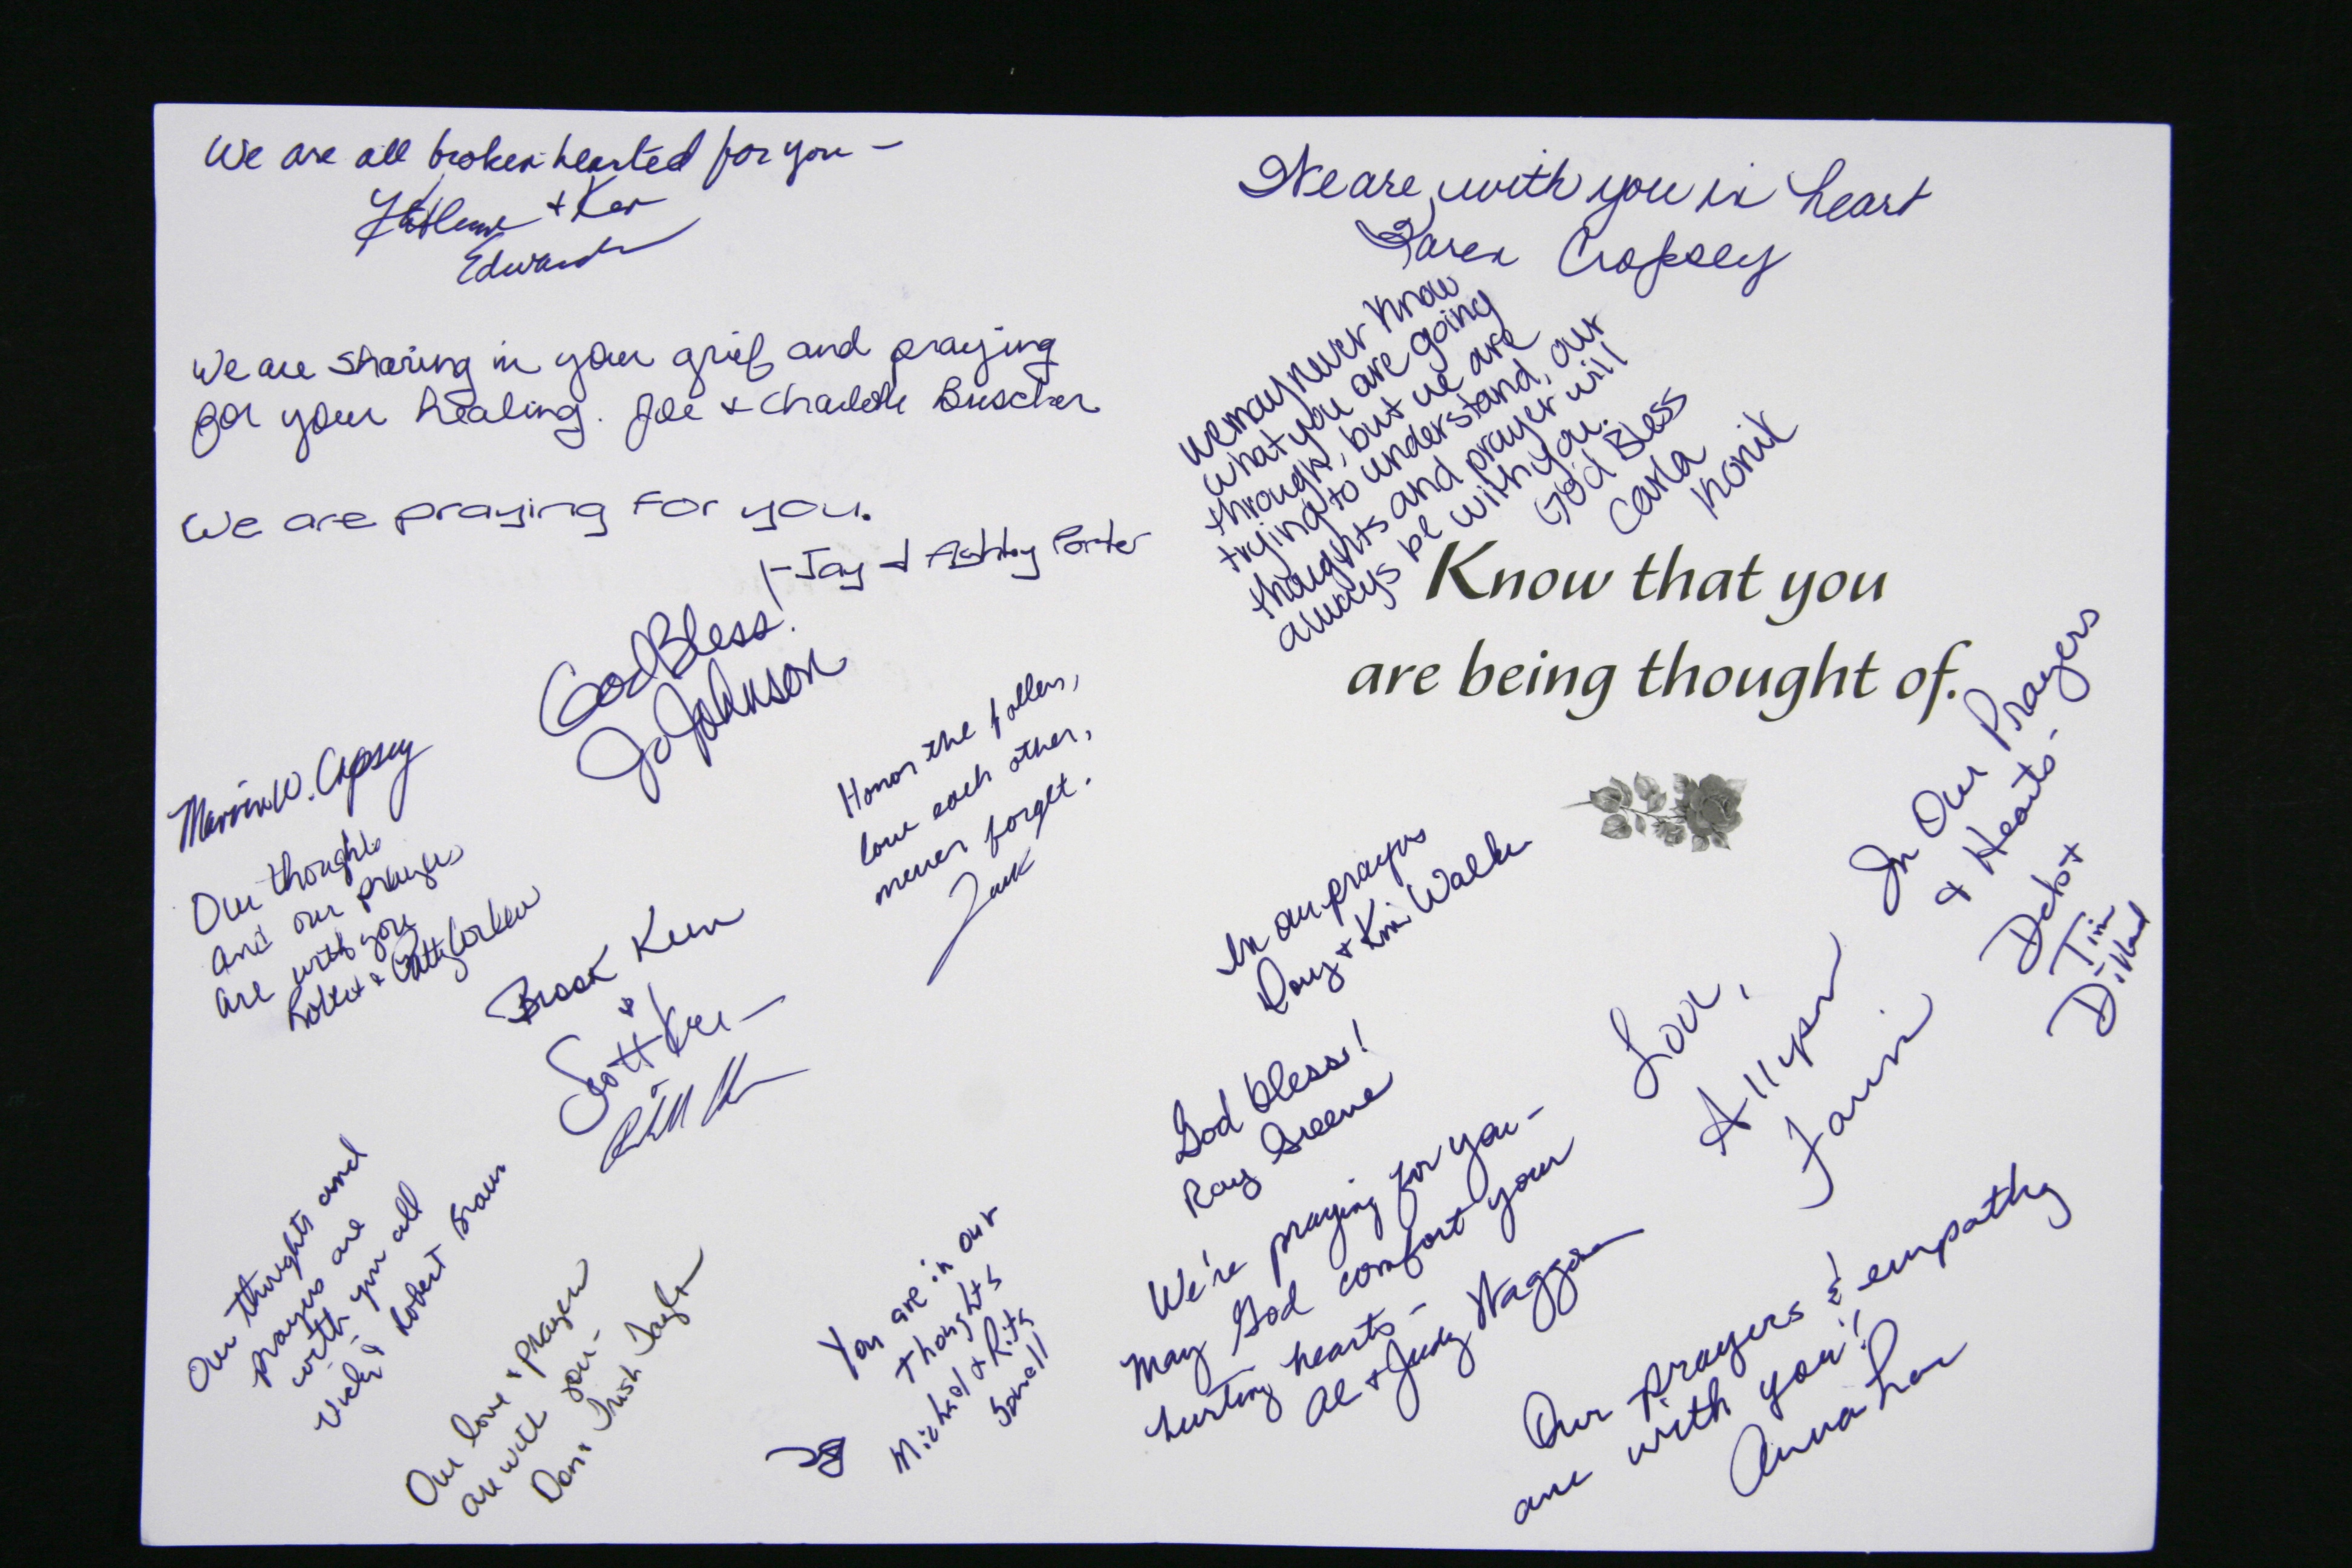 We are all broken-hearted for you -
Kathleen + Ken
Edwards
We are sharing in your grief and praying
for your healing. Joe + Charlotte Buscher
We are praying for you.
- Jay & Ashley Porter
God Bless!
Jo Johnson
Marvin W. Cropsey
Our thoughts
and our prayers
are with you
Robert & Patty
Honor the fallen,
love each other,
never forget.
Zack
Brook Keen
&
Scott Keen
Our thoughts and
prayers are
with you all
Vicki & Robert Braun
Our love & prayers
are with you -
Don & Trish Taylor
You are in our
thoughts
Michael & Rita
Small
We are with you in heart
Karen Cropsey
We may never know
what you are going
through, but we are
trying to understand, our
thoughts and prayer will
always be with you.
God Bless
Carla
Konik
Know that you
are being thought of.
In our prayers
Doug + Kim Walker
In Our Prayers
& Hearts -
Deb +
Tim
Dillard
God bless!
Ray Greene
Love,
Allyson
We're praying for you -
May God comfort your
hurting hearts -
Al + Judy Waggoner
Our prayers & empathy
are with you!
Anna